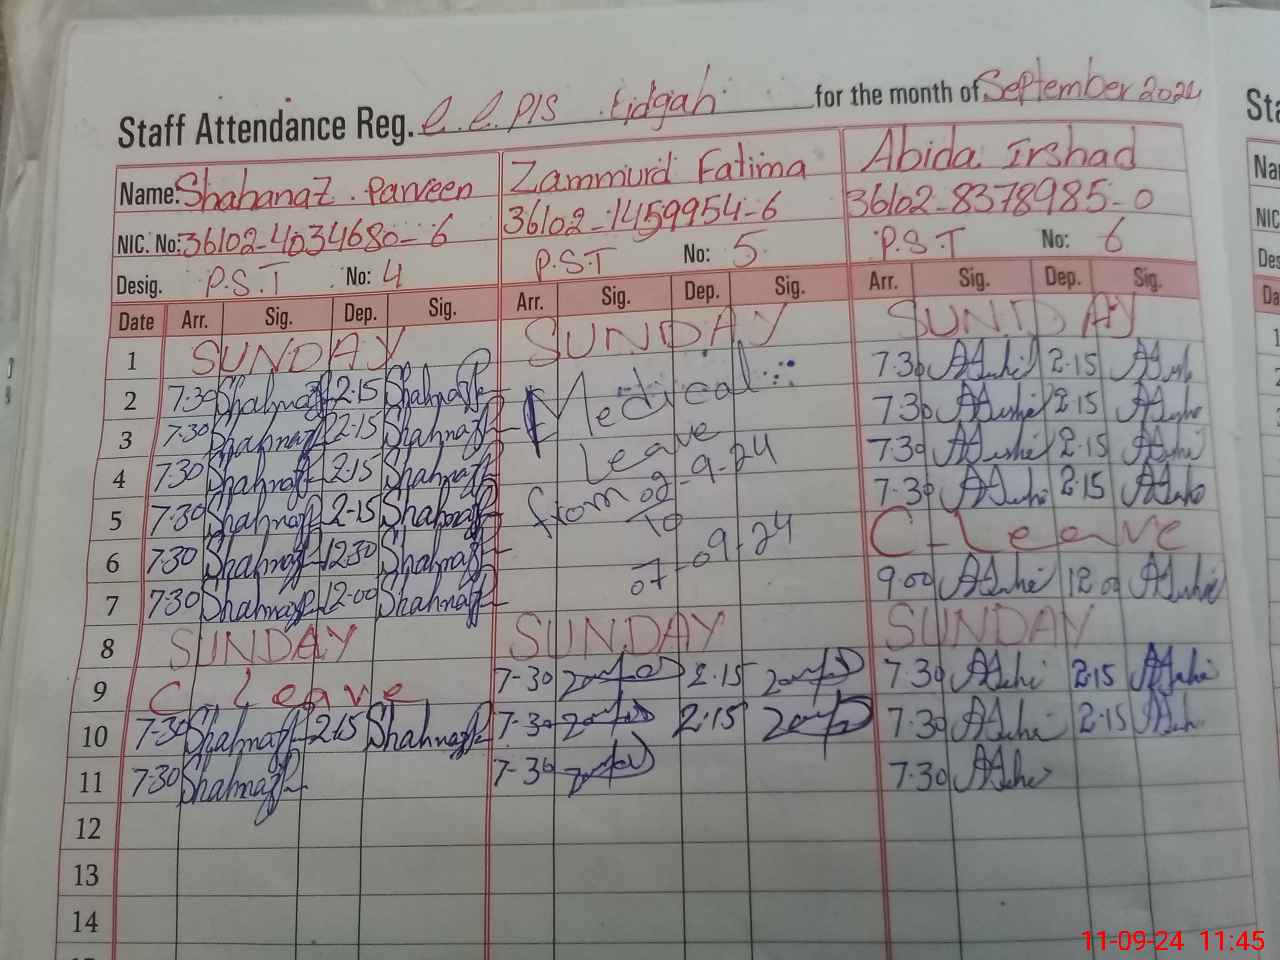 Staff Attendance Reg. G.G.P/S Eidgah for the month of September 2024
Name: Shahanaz Parveen Zammurd Fatima Abida Irshad
NIC. No: 36102-4034680-6 36102-1459954-6 36102-8378985-0
Desig. P.S.T No: 4 P.S.T No: 5 P.S.T No: 6
Date Arr. Sig. Dep. Sig. Arr. Sig. Dep. Sig. Arr. Sig. Dep. Sig.
1 SUNDAY SUNDAY SUNDAY
2 7:30 Shahnaz P 2:15 Shahnaz P Medical 7:30 2:15
3 7:30 Shahnaz P 2:15 Shahnaz P Leave 7:30 2:15
4 7:30 Shahnaz P 2:15 Shahnaz P from 02-9-24 7:30 2:15
5 7:30 Shahnaz P 2:15 Shahnaz P To 7:30 2:15
6 7:30 Shahnaz P 12:30 Shahnaz P 07-09-24 C-Leave
7 7:30 Shahnaz P 12:00 Shahnaz P 9:00 12:00
8 SUNDAY SUNDAY SUNDAY
9 C-Leave 7-30 2:15 7:30 2:15
10 7:30 Shahnaz P 2:15 Shahnaz P 7-30 2:15 7:30 2:15
11 7:30 Shahnaz P 7-30 7:30
12
13
14
11-09-24 11:45